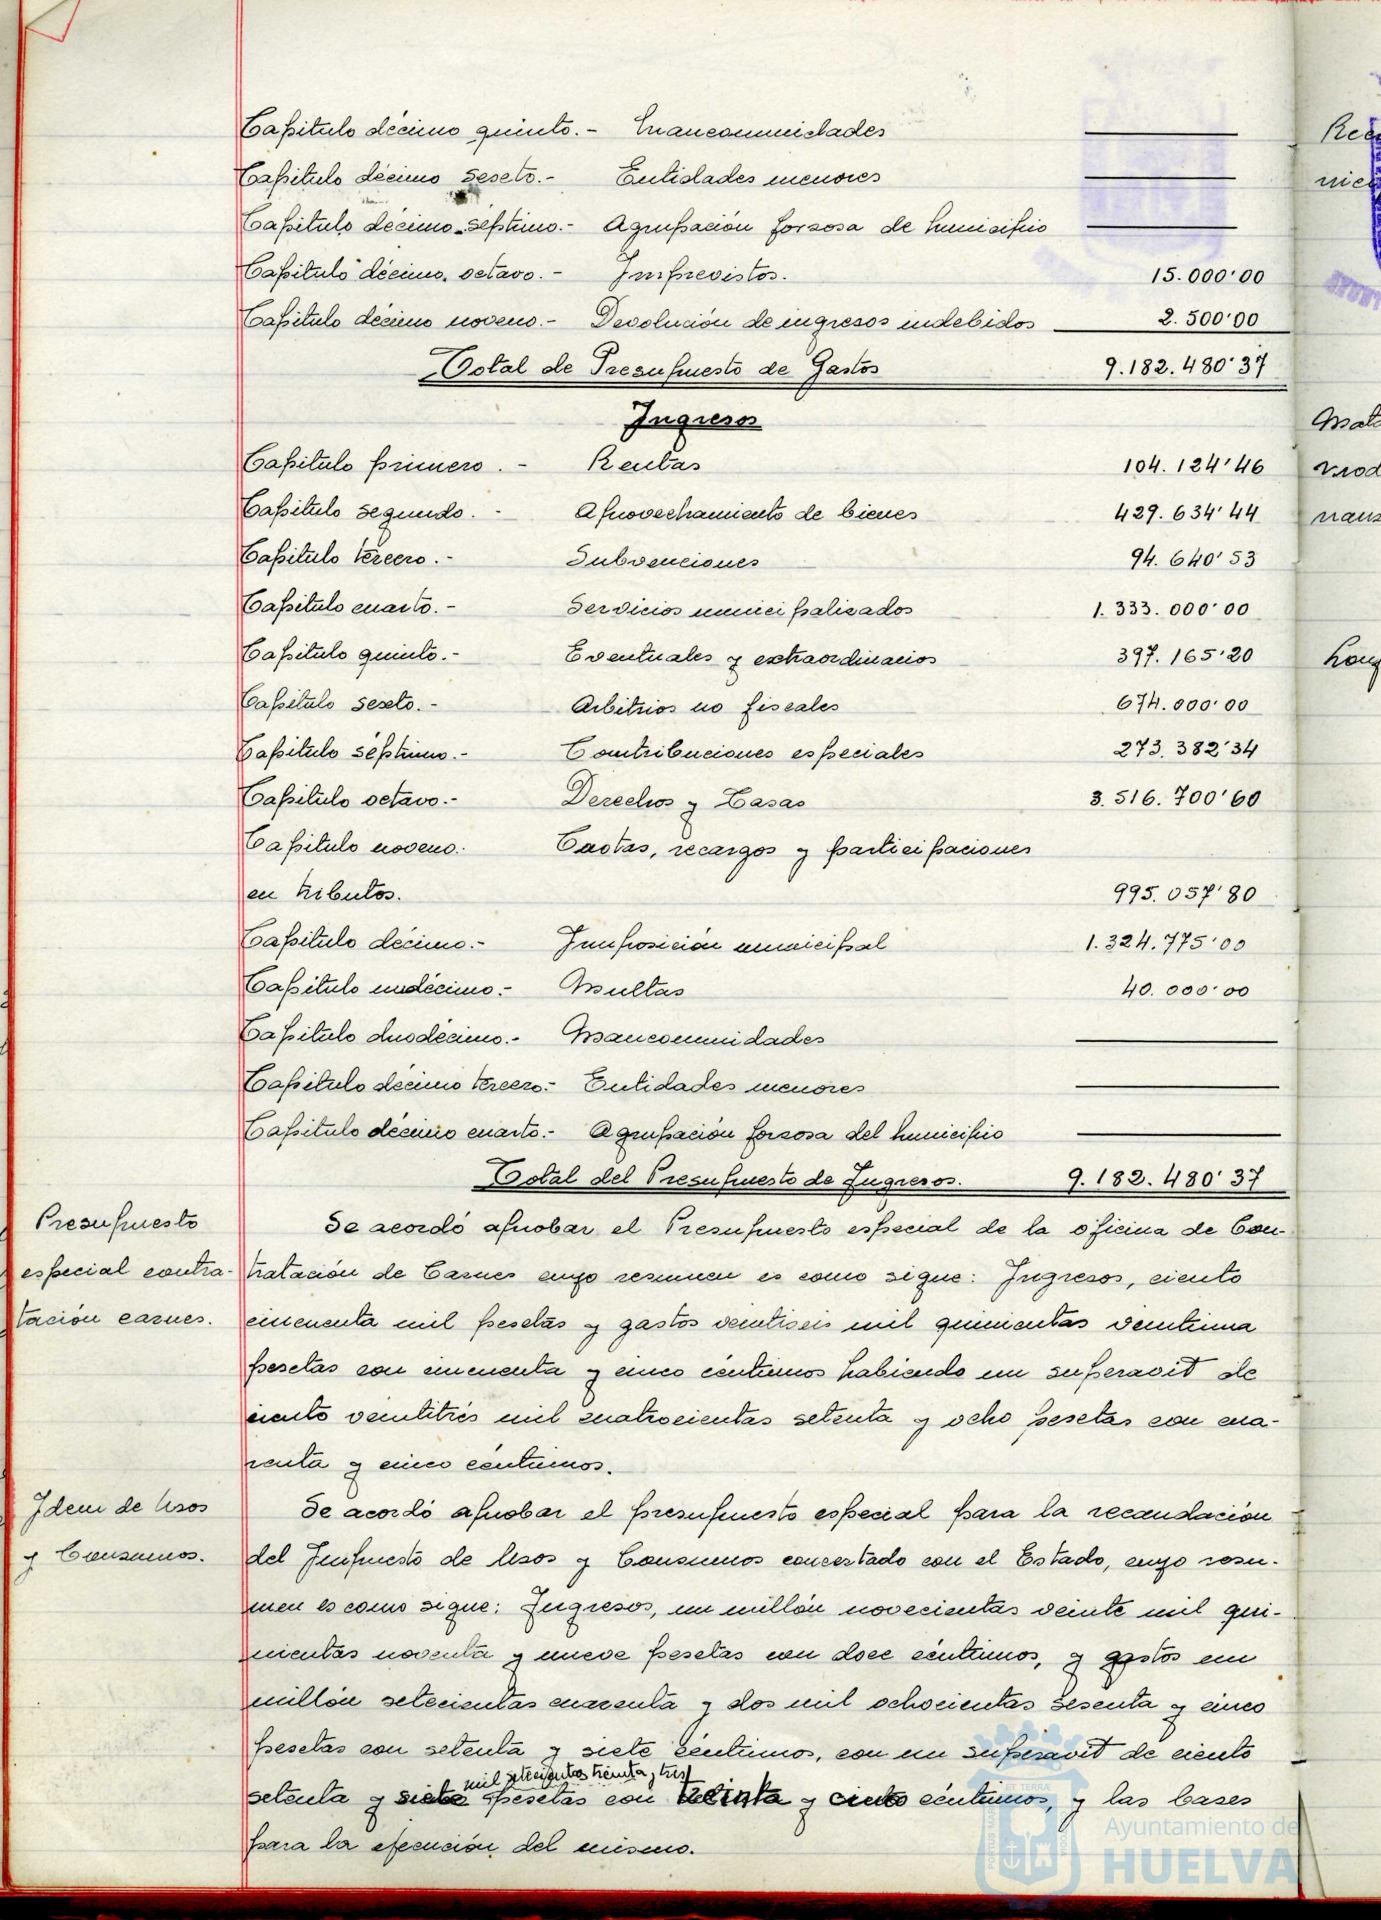 Capitulo décimo quinto.- Mancomunidades
Capitulo décimo sexto.- Entidades menores
Capitulo décimo séptimo.- Agrupación forzosa de Municipio
Capitulo décimo octavo.- Imprevistos. 15.000'00
Capitulo décimo noveno.- Devolución de ingresos indebidos 2.500'00
Total de Presupuesto de Gastos 9.182.480'37
Ingresos
Capitulo primero.- Rentas 104.124'46
Capitulo segundo.- Aprovechamiento de bienes 429.634'44
Capitulo tercero.- Subvenciones 94.640'53
Capitulo cuarto.- Servicios municipalizados 1.333.000'00
Capitulo quinto.- Eventuales y extraordinarios 397.165'20
Capitulo sexto.- Arbitrios no fiscales 674.000'00
Capitulo séptimo.- Contribuciones especiales 273.382'34
Capitulo octavo.- Derechos y Tasas 3.516.700'60
Capitulo noveno. Cuotas, recargos y participaciones
en tributos. 995.057'80
Capitulo décimo.- Imposición municipal 1.324.775'00
Capitulo undécimo.- Multas 40.000'00
Capitulo duodécimo.- Mancomunidades
Capitulo décimo tercero.- Entidades menores
Capitulo décimo cuarto.- Agrupación forzosa del Municipio
Total del Presupuesto de Ingresos. 9.182.480'37
Presupuesto
especial contra-
tación carnes.
Se acordó aprobar el Presupuesto especial de la oficina de Con-
tratación de Carnes cuyo resumen es como sigue: Ingresos, ciento
cincuenta mil pesetas y gastos veintiseis mil quinientas veintiuna
pesetas con cincuenta y cinco céntimos habiendo un superavit de
ciento veintitrés mil cuatrocientas setenta y ocho pesetas con cua-
renta y cinco céntimos.
Idem de Usos
y Consumos.
Se acordó aprobar el presupuesto especial para la recaudación
del Impuesto de Usos y Consumos concertado con el Estado, cuyo resu-
men es como sigue: Ingresos, un millón novecientas veinte mil qui-
nientas noventa y nueve pesetas con doce céntimos, y gastos un
millón setecientas cuarenta y dos mil ochocientas sesenta y cinco
pesetas con setenta y siete céntimos, con un superavit de ciento
mil setecientas treinta y tres
setenta y siete pesetas con treinta y cinco céntimos, y las bases
para la ejecución del mismo.
Ayuntamiento de
HUELVA